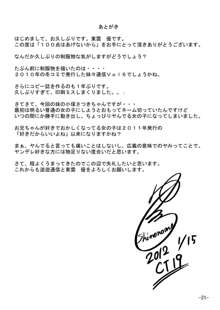 あとがき
はじめまして、お久しぶりです、東雲 優です。
この度は「100点はあげないから」をお手にとって頂きありがとうございます。
なんだか久しぶりの制服物な気がしますがどうでしょう?
たぶん前に制服物を描いたのは・・・・
2010年の冬コミで発行した妹々通信Vol6ですかね・・・
さらにコピー誌を作るのも1年ぶりです。
久しぶりすぎて、印刷ミスしまくりました・・・・
最初は普通の女の子にしようとおもってネーム切っていたのですが
いつの間にか勝手に動き出し、ちょっぴりヤんでる女の子になってしまいました。
お兄ちゃんが好きでおかしくなってる女の子は2011年発行の
「好きだからいいよね」以来になりますかね?
まぁ、ヤんでると言っても痛いことはしないし、広義の意味でのヤみって事で、
ヤンデレ好きな方には物足りない度合いだと思います。
さて、程よくうまってきたこの辺で失礼したいと思います。
これからも遊遊通信と東雲 優をよろしくお願いします。
Shinonome
2012 1/15
CT19
-21-